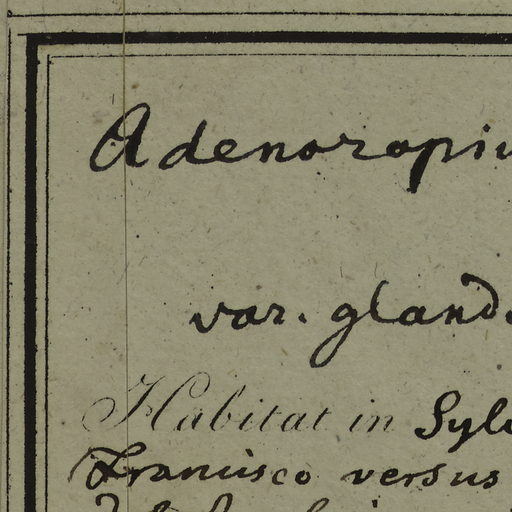 Adenoropiu
var. gland.
Habitat in Sylv
Francisco versus